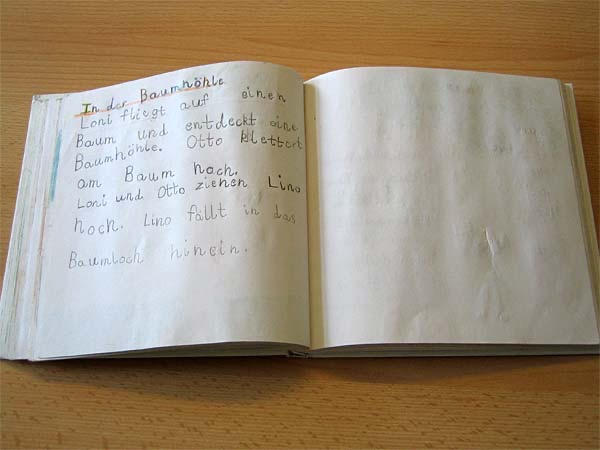 In der Baumhöhle
Loni fliegt auf einen
Baum und entdeckt eine
Baumhöhle. Otto klettert
am Baum hoch.
Loni und Otto ziehen Lino
hoch. Lino fällt in das
Baumloch hinein.